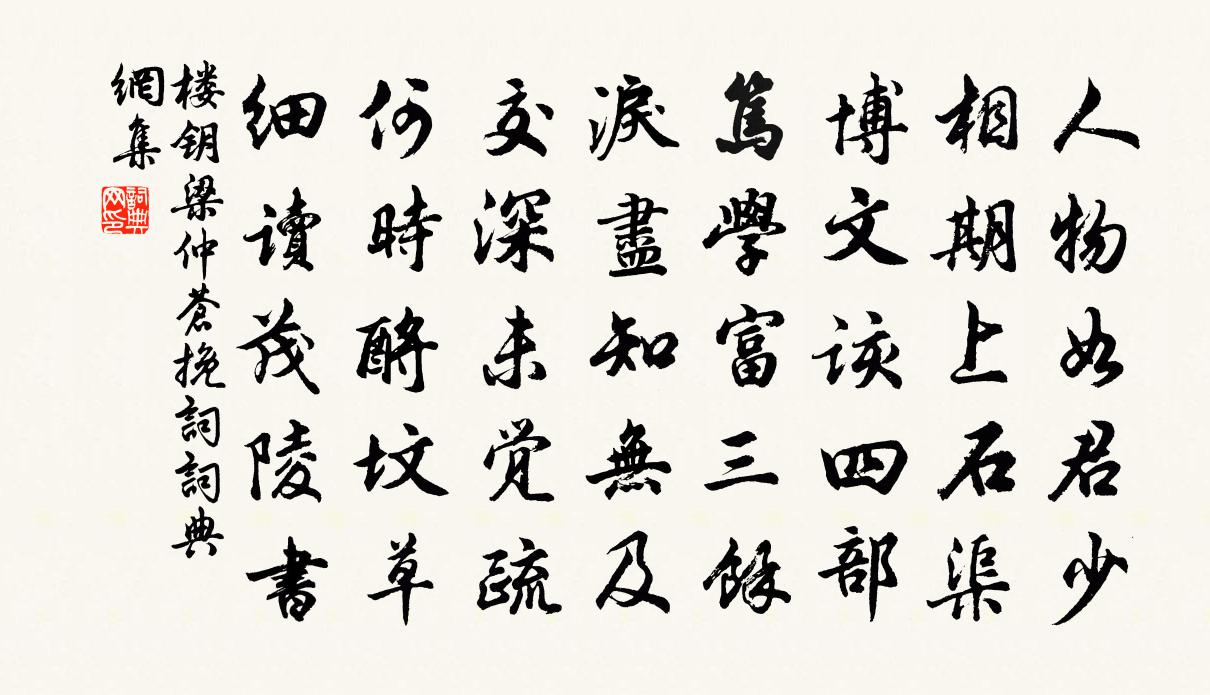 人物如君少
相期上石渠
博文該四部
篤學富三餘
淚盡知無及
交深未覺疏
何時酹坟草
細讀茂陵書
楼钥梁仲蒼挽詞詞典
網集
詞典
网印